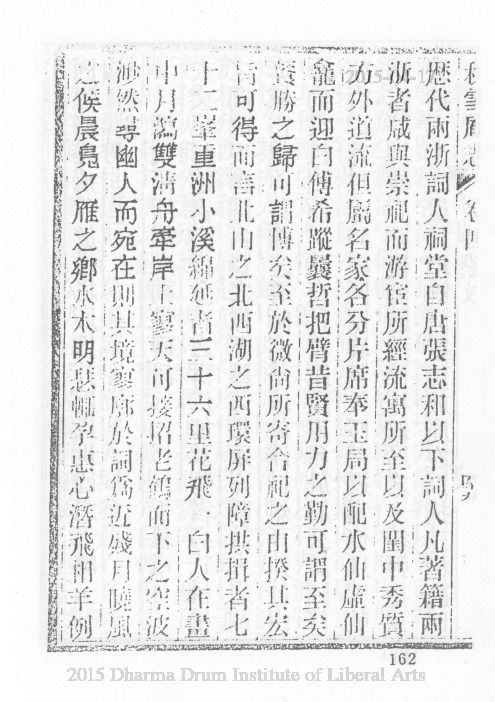 秋雪庵志 卷四
歷代兩浙詞人祠堂自唐張志和以下詞人凡著籍兩
浙者咸與崇祀而游宦所經流寓所至以及閨中秀質
方外道流但屬名家各分片席奉玉局以配水仙虛仙
龕而迎白傅希蹤曩哲把臂昔賢用力之勤可謂至矣
勝之歸可謂博矣至於微尙所寄合祀之由揆其宏
旨可得而言北山之北西湖之西環屏列障拱揖者七
十二峯重洲小溪綿延者三十六里花飛一白人在畫
中月瀉雙淸舟牽岸上寥天可接招老鶴而下之空波
渺然尋幽人而宛在則其境寥廓於詞爲近殘月曉風
之候晨鳧夕雁之鄉水木明瑟孕惠心潛飛相羊例
162
2015 Dharma Drum Institute of Liberal Arts